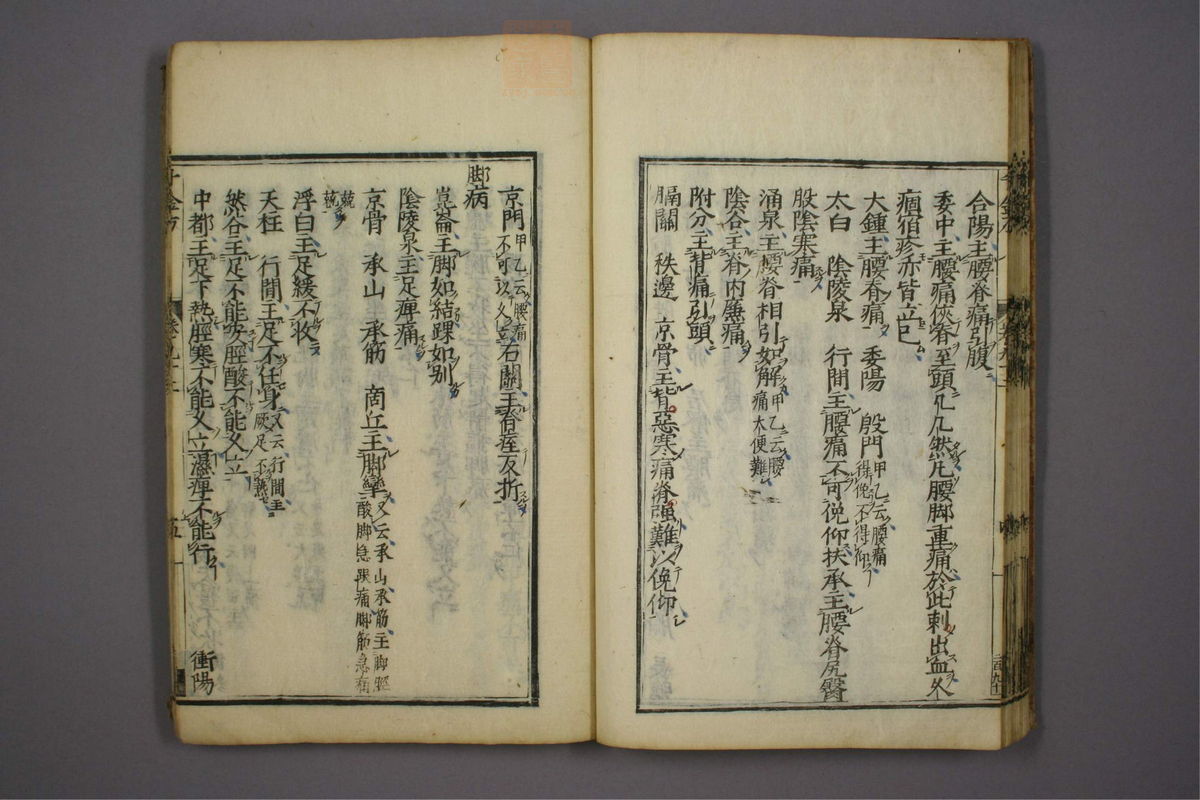 合陽主腰脊痛引腹
委中主腰痛俠脊至頭几几然凡腰脚重痛於此刺出血久
痼宿疹亦皆立已
大鍾主腰脊痛 委陽 殷門甲乙云腰痛得俛不得仰
太白 陰陵泉 行間主腰痛不可俛仰扶承主腰脊尻臀
股陰寒痛
涌泉主腰脊相引如解甲乙云腰痛大便難
陰谷主脊内廉痛
附分主背痛引頭
膈關 秩邊 京骨主背惡寒痛脊強難以俛仰
京門甲乙云腰痛不可以久立石關主脊痓反折
脚病
崑崙主脚如結踝如別
陰陵泉主足痺痛
京骨 承山 承筋 商丘主脚攣又云承山承筋主脚脛酸脚急跟痛脚筋急痛
兢兢
浮白主足緩不收
天柱 行間主足不任身又云行間主厥足下熱
然谷主足不能安脛酸不能久立
中都主足下熱脛寒不能久立濕痺不能行 衝陽